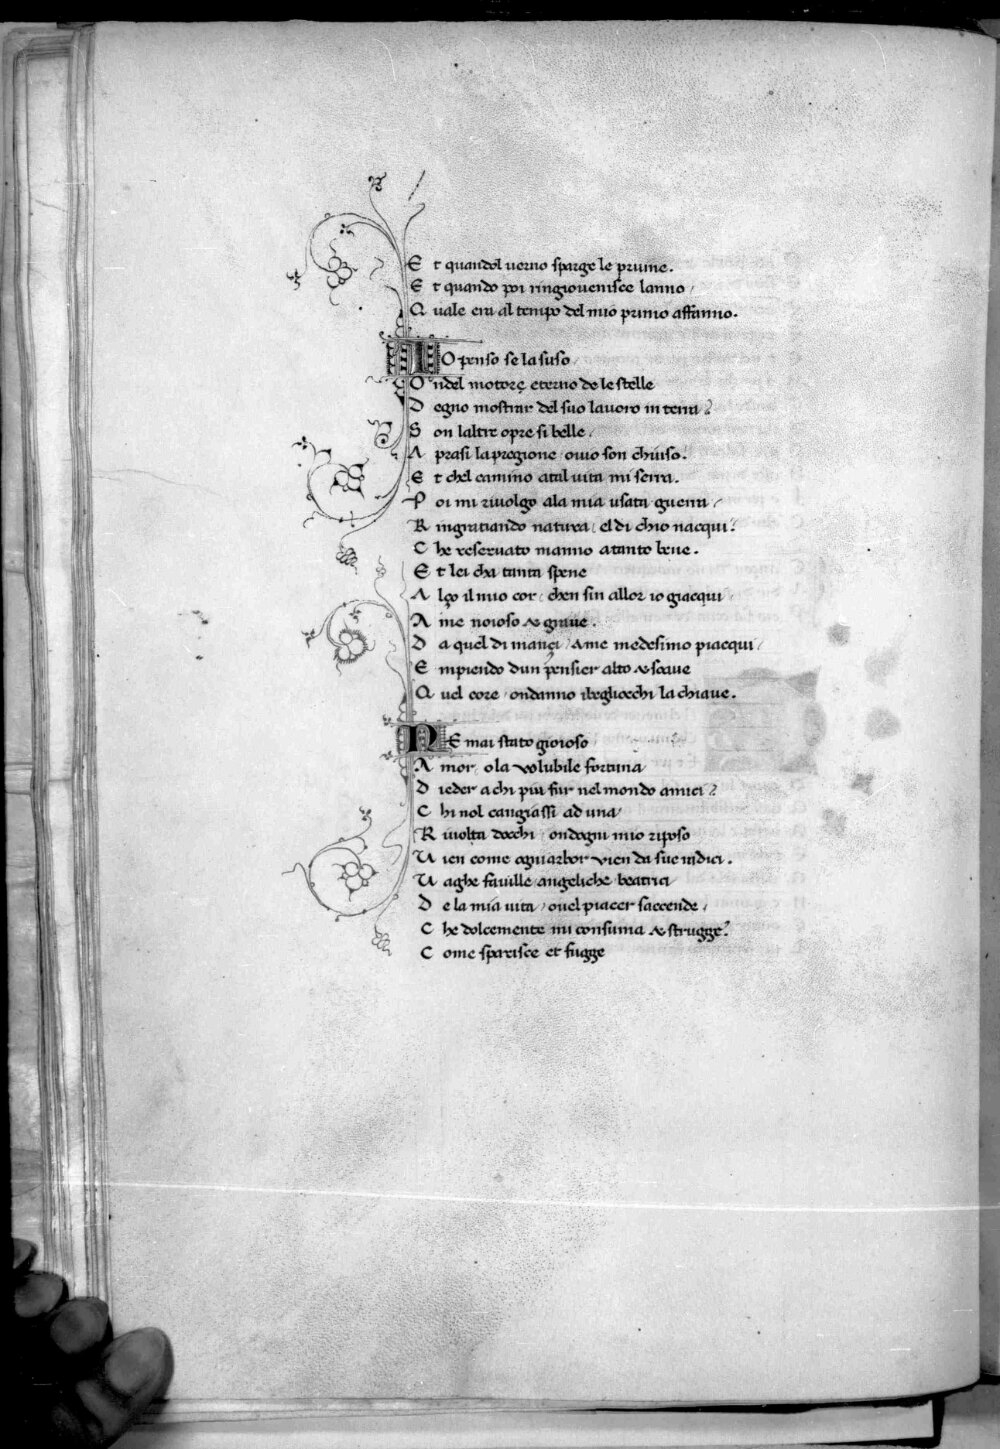 Et quandol uerno sparge le pruine.
Et quando poi ringiouenisce lanno
Quale era al tempo del mio primo affanno.
IO penso se la suso
Ondel motore eterno de le stelle
Degno mostrar del suo lauoro in terra?
Son laltre opre si belle
Aprasi la pregione ouio son chiuso.
Et chel camino atal uita mi serra.
Poi mi riuolgo ala mia usata guerra
Ringratiando natura el di chio nacqui?
Che reseruato manno atanto bene.
Et lei cha tanta spene
Alço il mio cor chen sin allor io giacqui
A me noioso & graue.
Da quel di mançi ame medesimo piacqui
Empiendo dun pensier alto & soaue
Quel core ondanno ibegliocchi la chiaue.
NE mai stato gioioso
Amor ola uolubile fortuna
Dieder a chi piu fur nel mondo amici?
Chi nol cangiassi ad una
Riuolta docchi ondogni mio riposo
Uien come ogniarbor uien da sue radici.
Uaghe fauille angeliche beatrici
De la mia uita ouel piacer saccende
Che dolcemente mi consuma & strugge?
Come sparisce et fugge